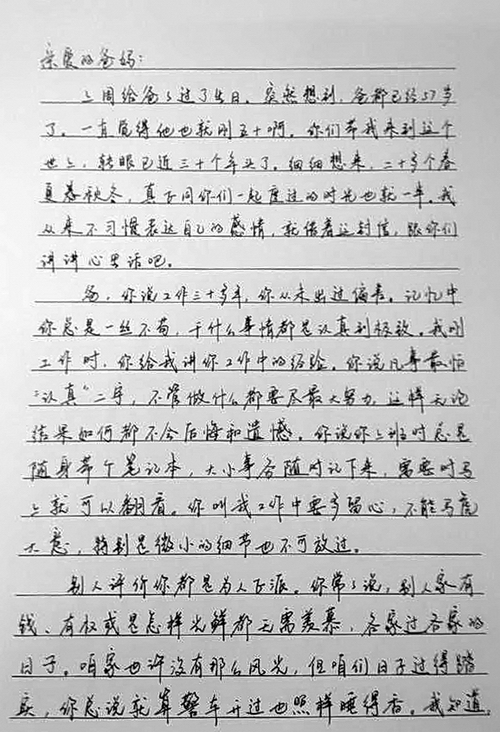 亲爱的爸妈:
上周给爸爸过了生日。突然想到,爸都已经57岁
了。一直觉得他也就刚五十啊。你们带我来到这个
世上,转眼已近三十个年头了。细细想来,二十多个春
夏秋冬,真正同你们一起度过的时光也就一半。我
从来不习惯表达自己的感情,就借着这封信,跟你们
讲讲心里话吧。
爸,你说工作三十多年,你从未出过偏差。记忆中
你总是一丝不苟,干什么事情都是认真到极致。我刚
工作时,你给我讲你工作中的经验。你说凡事最怕
“认真”二字,不管做什么都要尽最大努力,这样无论
结果如何都不会后悔和遗憾。你说你上班时总是
随身带个笔记本,大小事务随时记下来,需要时马
上就可以翻看。你叫我工作中要多留心,不能马虎
大意,特别是微小的细节也不可放过。
别人评价你都是为人正派。你常常说,别人家有
钱、有权或是怎样光鲜都无需羡慕,各家过各家的
日子。咱家也许没有那么风光,但咱们日子过得踏
实,你总说就算警车开过也照样睡得香。我知道,